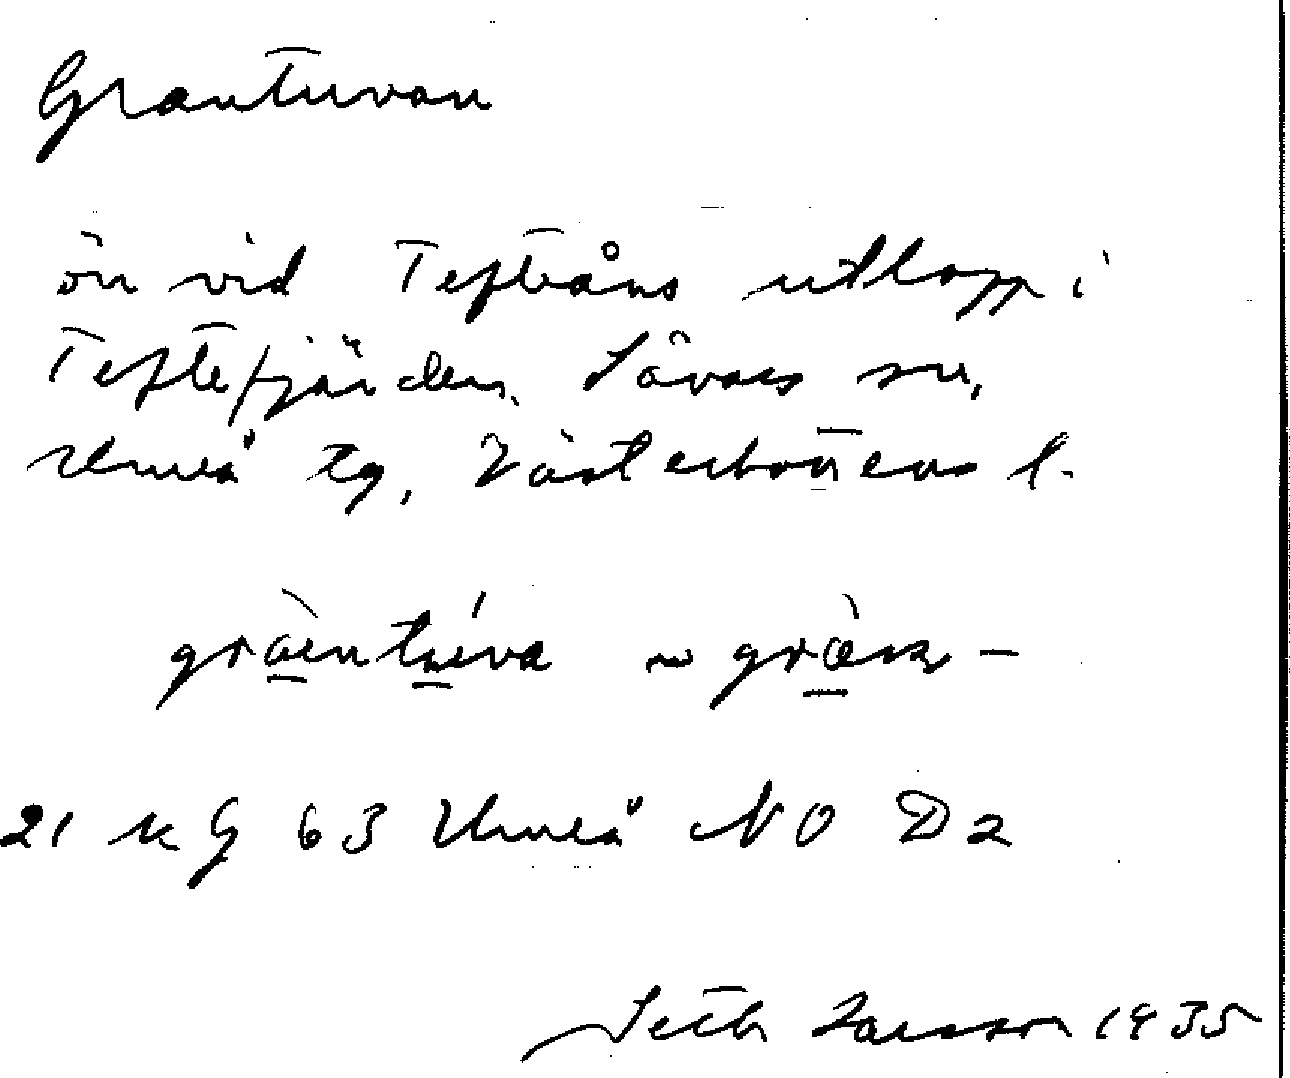 Grantuvan
ön vid Tefteåns utlopp i
Teftefjärden, Sävars sn,
Umeå tg, Västerbottens l.
21 K G 63 Umeå NO D2
Seth Larsson 1935